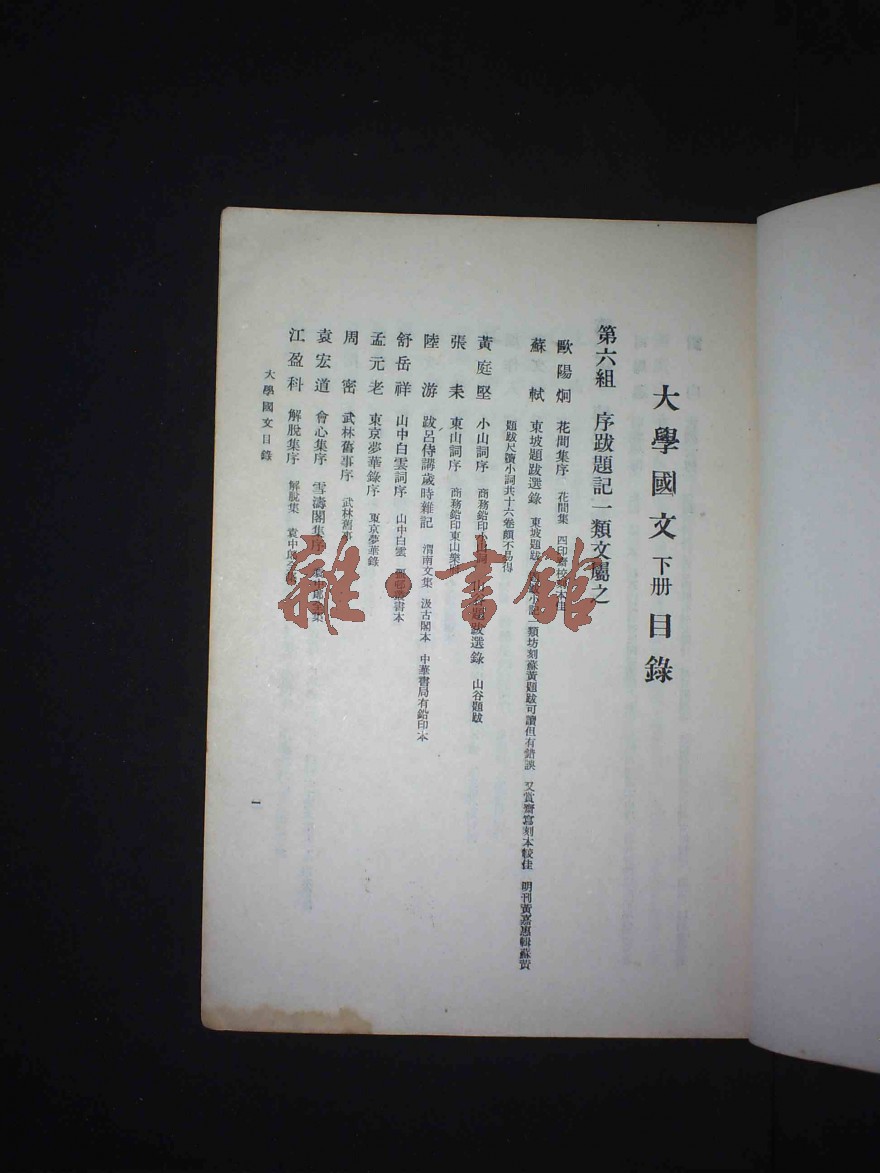 大學國文下册目錄
第六組 序跋題記一類文屬之
歐陽炯 花間集序 花間集 四印齋校 本佳
蘇軾 東坡題跋選錄 東坡題跋 小記一類坊刻蘇黃題跋可讀但有錯誤 又賞齋寫刻本較佳 明刊黃嘉惠輯蘇黃
題跋尺牘小詞共十六卷頗不易得
黃庭堅 小山詞序 商務鉛印小山詞 題跋選錄 山谷題跋
張耒 東山詞序 商務鉛印東山樂府
陸游 跋呂侍講歲時雜記 渭南文集 汲古閣本 中華書局有鉛印本
舒岳祥 山中白雲詞序 山中白雲 叢書本
孟元老 東京夢華錄序 東京夢華錄
周密 武林舊事序 武林舊事
袁宏道 會心集序 雪濤閣集序 袁中郎全集
江盈科 解脫集序 解脫集 袁中郎全集
大學國文目錄
一
雜·書館